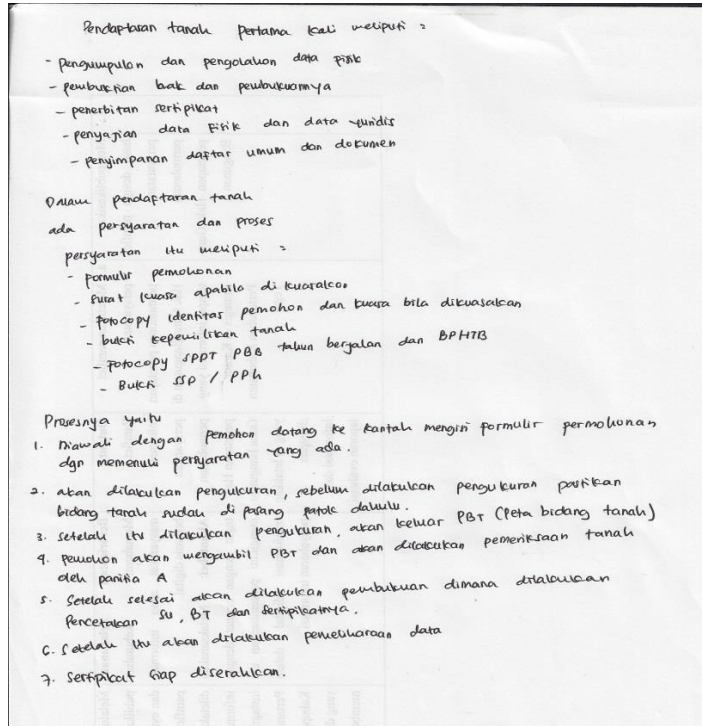 Pendaptaran tanah pertama kali meliputi :
- pengumpulan dan pengolahan data pisik
- pembuktian hak dan pembukuannya
- penerbitan sertipikat
- penyajian data Fisik dan data yuridis
- penyimpanan daftar umum dan dokumen
Dalam pendaftaran tanah
ada persyaratan dan proses
persyaratan itu meliputi :
- formulir permohonan
- surat kuasa apabila di kuasakan
- potocopy identitas pemohon dan kuasa bila dikuasakan
- bukti kepemilikan tanah
- Fotocopy SPPT PBB tahun berjalan dan BPHTB
- Bukti SSP / PPh
Prosesnya yaitu
1. Diawali dengan pemohon datang ke kantah mengisi formulir permohonan
dgn memenuhi persyaratan yang ada.
2. akan dilakukan pengukuran, sebelum dilakukan pengukuran pastikan
bidang tanah sudah di pasang patok dahulu.
3. setelah itu dilakukan pengukuran, akan keluar PBT (Peta bidang tanah)
4. pemohon akan mengambil PBT dan akan dilakukan pemeriksaan tanah
oleh panitia A
5. Setelah selesai akan dilakukan pembukuan dimana dilakukan
Pencetakan SU, BT dan sertipikatnya.
6. Setelah itu akan dilakukan pemeliharaan data
7. Sertipikat siap diserahkan.